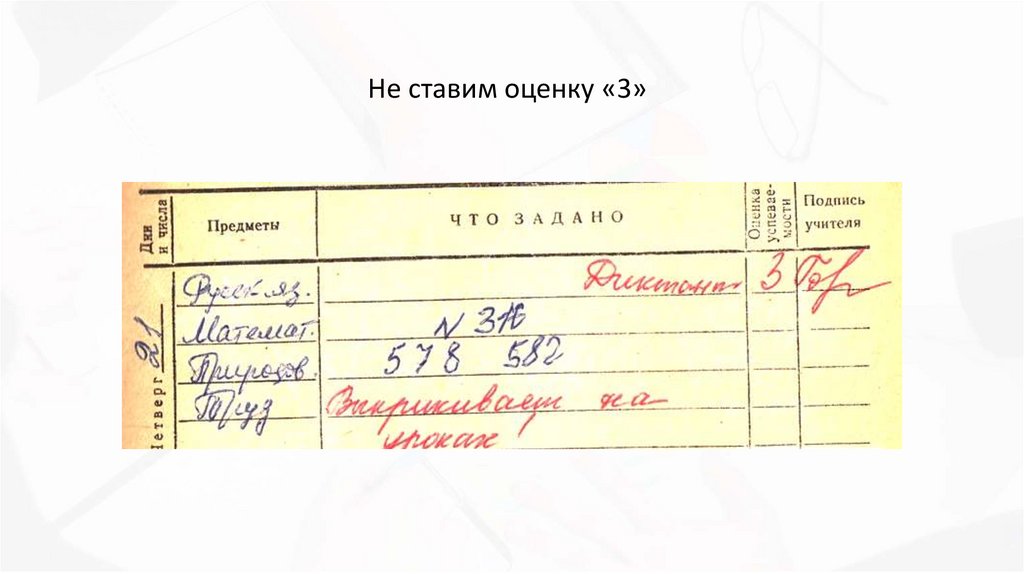 Не ставим оценку «3»
Дни и числа
Предметы
ЧТО ЗАДАНО
Оценка успевае-мости
Подпись учителя
Четверг 21
Русск яз.
Диктант
3
Математ.
N 316
Природов.
578 582
Труд
Выкрикивает на
уроках